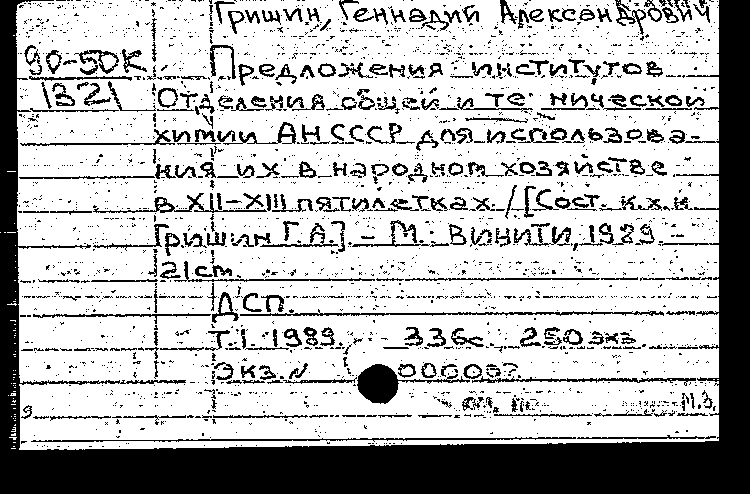 Гришин, Геннадий Александрович
90-50К Предложения институтов
1321 Отделения общей и те нической
химии АН СССР для использова-
ния их в народном хозяйстве
в XII-XIII пятилетках. / [Сост. к.х.н.
Гришин Г.А.]. - М.: ВИНИТИ, 1989. -
21 cm.
ДСП.
Т.1. 1989. 336с. 250 экз.
Экз. N
М.З.
9